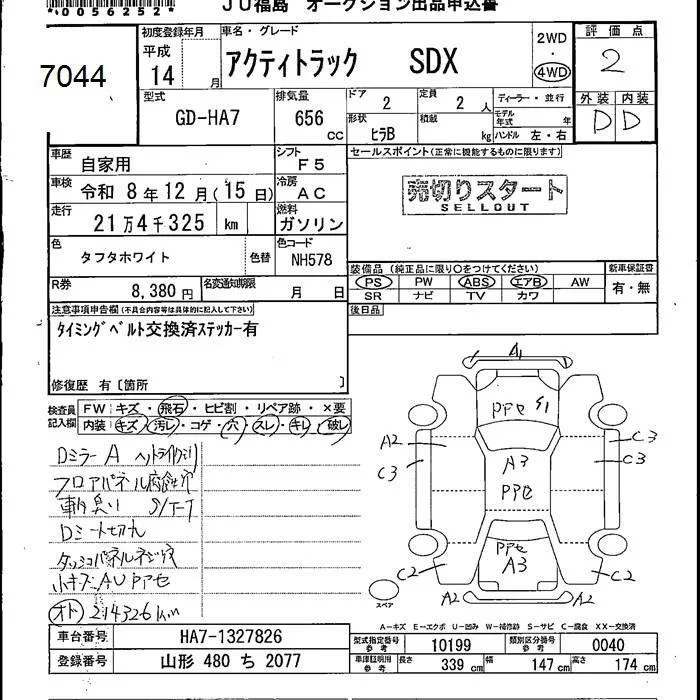 *0056252*
JU福島 オークション出品申込書
7044
初度登録年月
平成
14 月
車名・グレード
アクティトラック SDX
2WD
・
4WD
評価点
2
外装 内装
D D
型式
GD-HA7
排気量
656 CC
ドア 2
定員 2 人
ディーラー・並行
モデル年式 年
形状 ヒラB
積載 kg
ハンドル 左・右
車歴 自家用
シフト F5
セールスポイント(正常に機能するものに限ります)
車検 令和 8年 12月(15日)
冷房 AC
売切りスタート
SELLOUT
走行 21万4千325 km
燃料 ガソリン
色 タフタホワイト 色替
色コード NH578
R券 8,380円
名変通知期限 月 日
装備品 (純正品に限り○をつけてください)
新車保証書
PS PW ABS エアB AW
有・無
SR ナビ TV カワ
後日品
注意事項申告欄(不具合内容等は具体的に記入して下さい)
タイミングベルト交換済ステッカー有
修復歴 有〔箇所 〕
検査員記入欄
FW キズ・飛石・ヒビ割・リペア跡・×要
内装 キズ・汚レ・コゲ・穴・スレ・キレ・破レ
Dミラー A
フロアパネル腐食穴
車内臭い S/T-T
Dシート切れ
ダッシュパネルネジ穴
小キズ AU PPセ
オト 214326km
A
PPセ S1
A2 C3
C3 A3 C3
PPセ
PPセ
A3
C2 C2
A2 A2
スペア
A-キズ E-エクボ U-凹み W-補修跡 S-サビ C-腐食 XX-交換済
車台番号 HA7-1327826
型式指定番号 参考 10199
類別区分番号 参考 0040
登録番号 山形 480 ち 2077
車庫証明用 参考 長さ 339 cm 幅 147 cm 高さ 174 cm